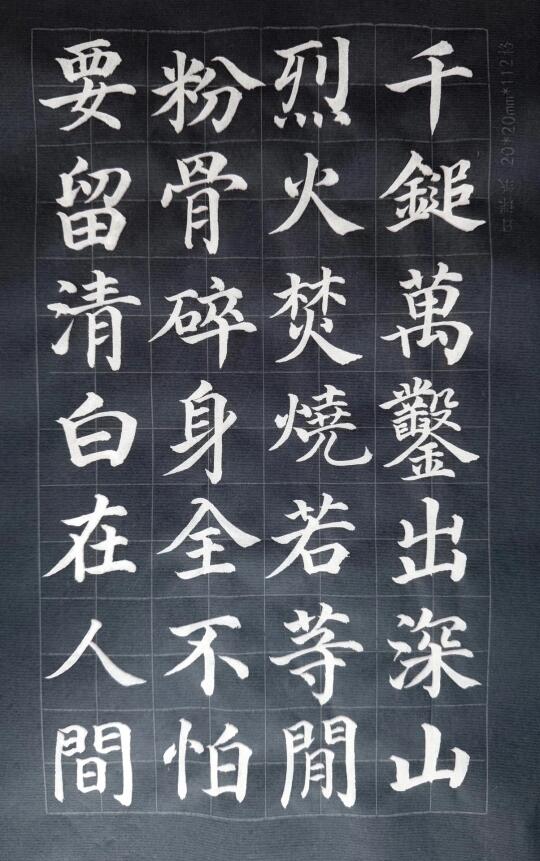 千鎚萬鑿出深山
烈火焚燒若等閒
粉骨碎身全不怕
要留清白在人間
20*20mm*112格